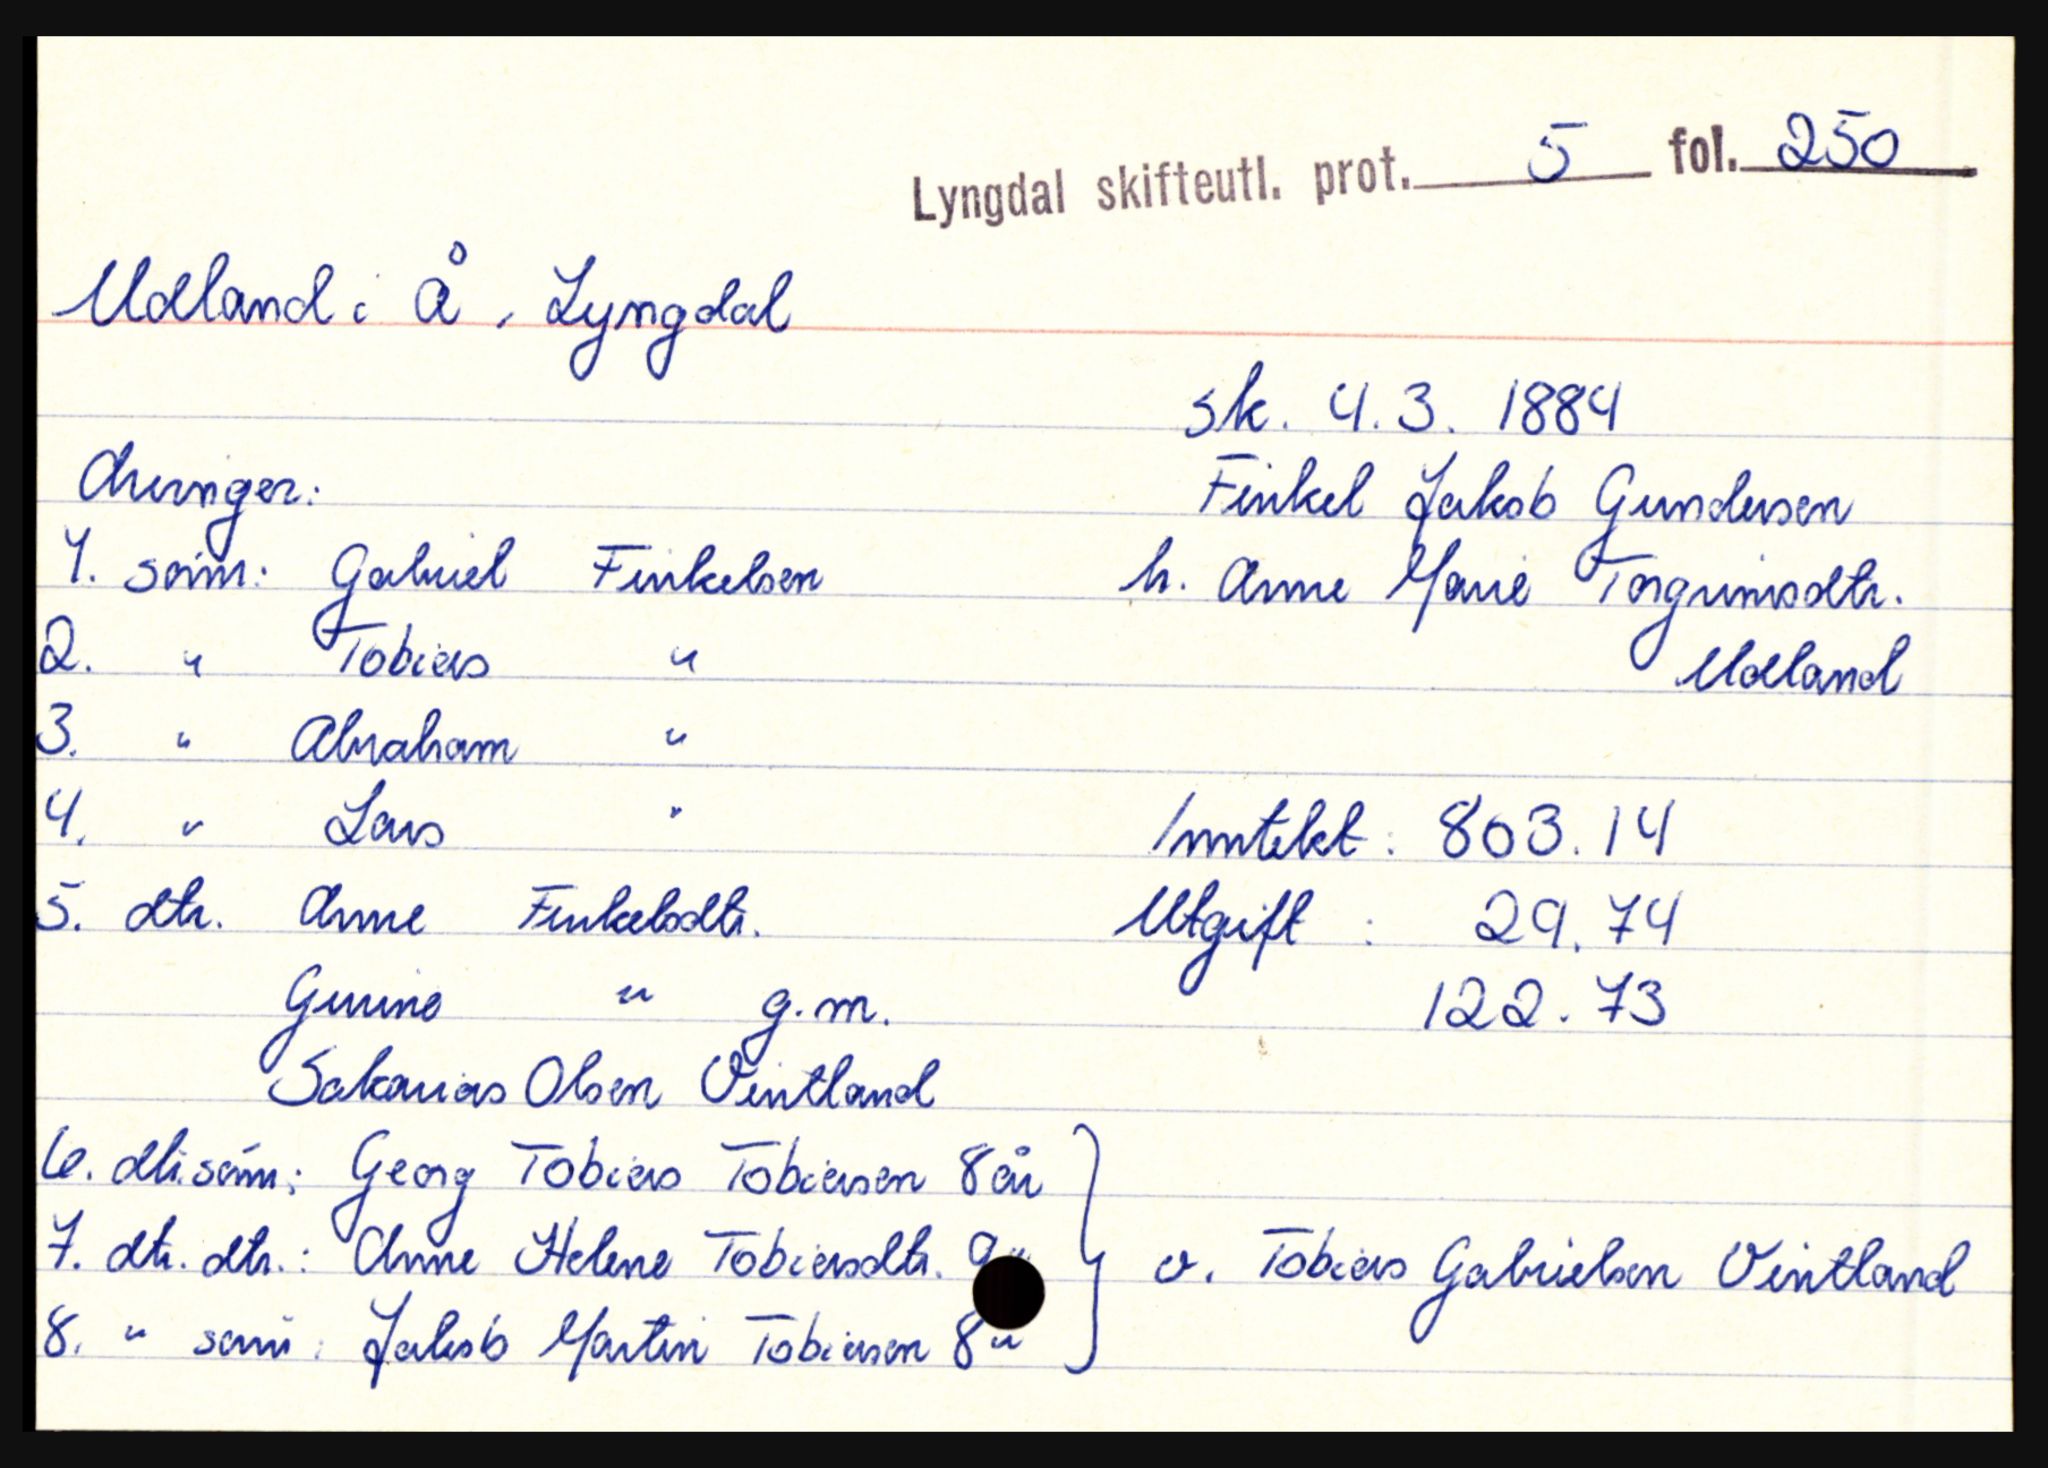 Lyngdal skifteutl. prot. 5 fol. 250
Udland i Å, Lyngdal
sk. 4.3. 1884
Arvinger:
Finkel Jakob Gundersen
1. sønn: Gabriel Finkelsen
h. Anne Marie Torgrimsdtr.
2. " Tobias "
Udland
3. " Abraham "
4. " Lars "
Inntekt: 803.14
5. dtr. Anne Finkelsdtr.
Utgift: 29.74
Gurine " g.m.
122.73
Sakarias Olsen Vintland
6. dtr.sønn: Georg Tobias Tobiasen 8 år
7. dtr. dtr.: Anne Helene Tobiasdtr. 9 "
v. Tobias Gabrielsen Vintland
8. " sønn: Jakob Martin Tobiasen 8 "